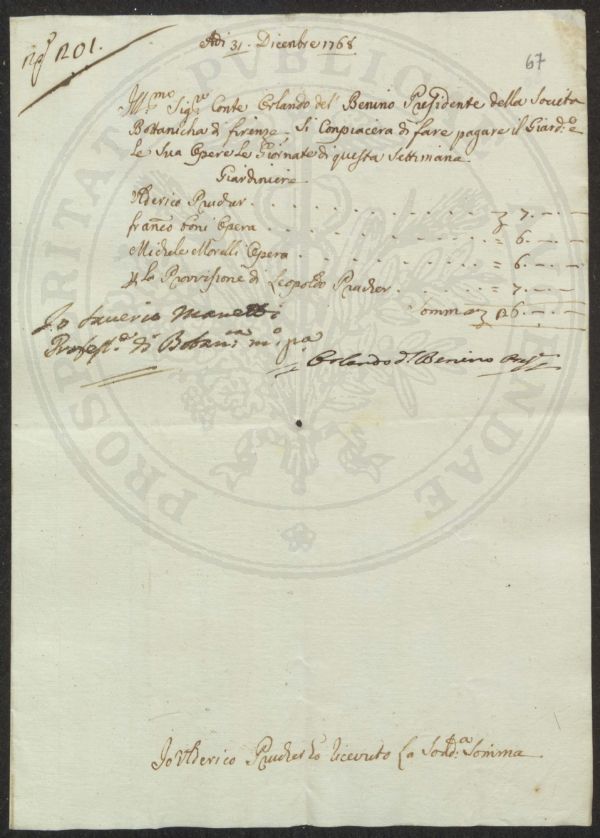 N.º 1201.
67
Adi 31. Dicenbre 1768
Ill.mo Sig.re Conte Orlando del Benino Presidente della Società
Bottanicha di firenze, Si Conpiacera di fare pagare il Giard.o e
le Sua Opere le Giornate di questa Settimana
Giardiniere
Ulderico Prucher . . . . . . . . . . . 7. — —
franco boni Opera . . . . . . . . . . = 6. — —
Michele Morelli Opera . . . . . . . . = 6. — —
La Provvisione di Leopoldo Prucher . . = 7. — —
Somma 26. — —
Io Saverio Manetti
Profess.e di Botan.ca m.o p.a
Orlando del Benino Pres.e
Io Ulderico Prucher ho ricevuto La Sodd.a Somma
PUBLICAE
PROSPERITATI
AUGENDAE